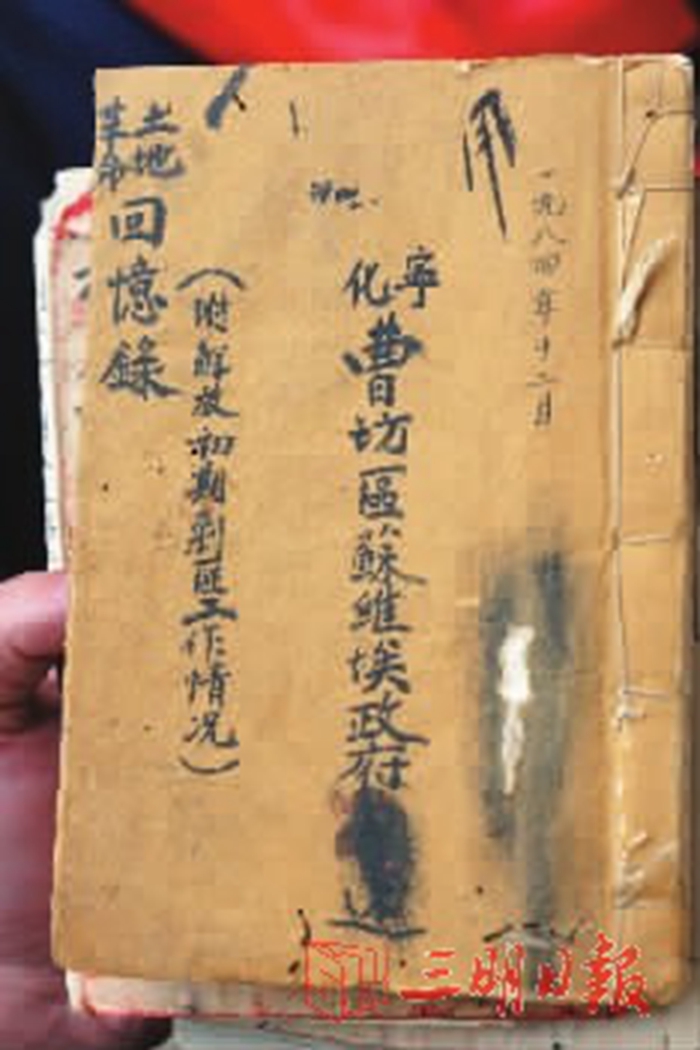 一九八四年十二月
寧化曹坊區蘇維埃政府
(附解放初期剿匪工作情况)
土地革命回憶錄
三明日報